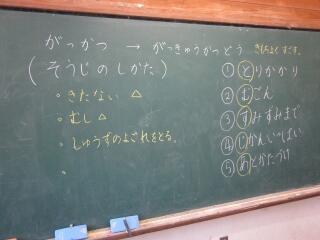 がっかつ → がっきゅうかつどう きもちよくすごす。
(そうじのしかた)
・きたない △
・むし △
・しゅうずのよごれをとる。
・
① とりかかり
② むごん
③ すみずみまで
④ じかんいっぱい
⑤ あとかたづけ